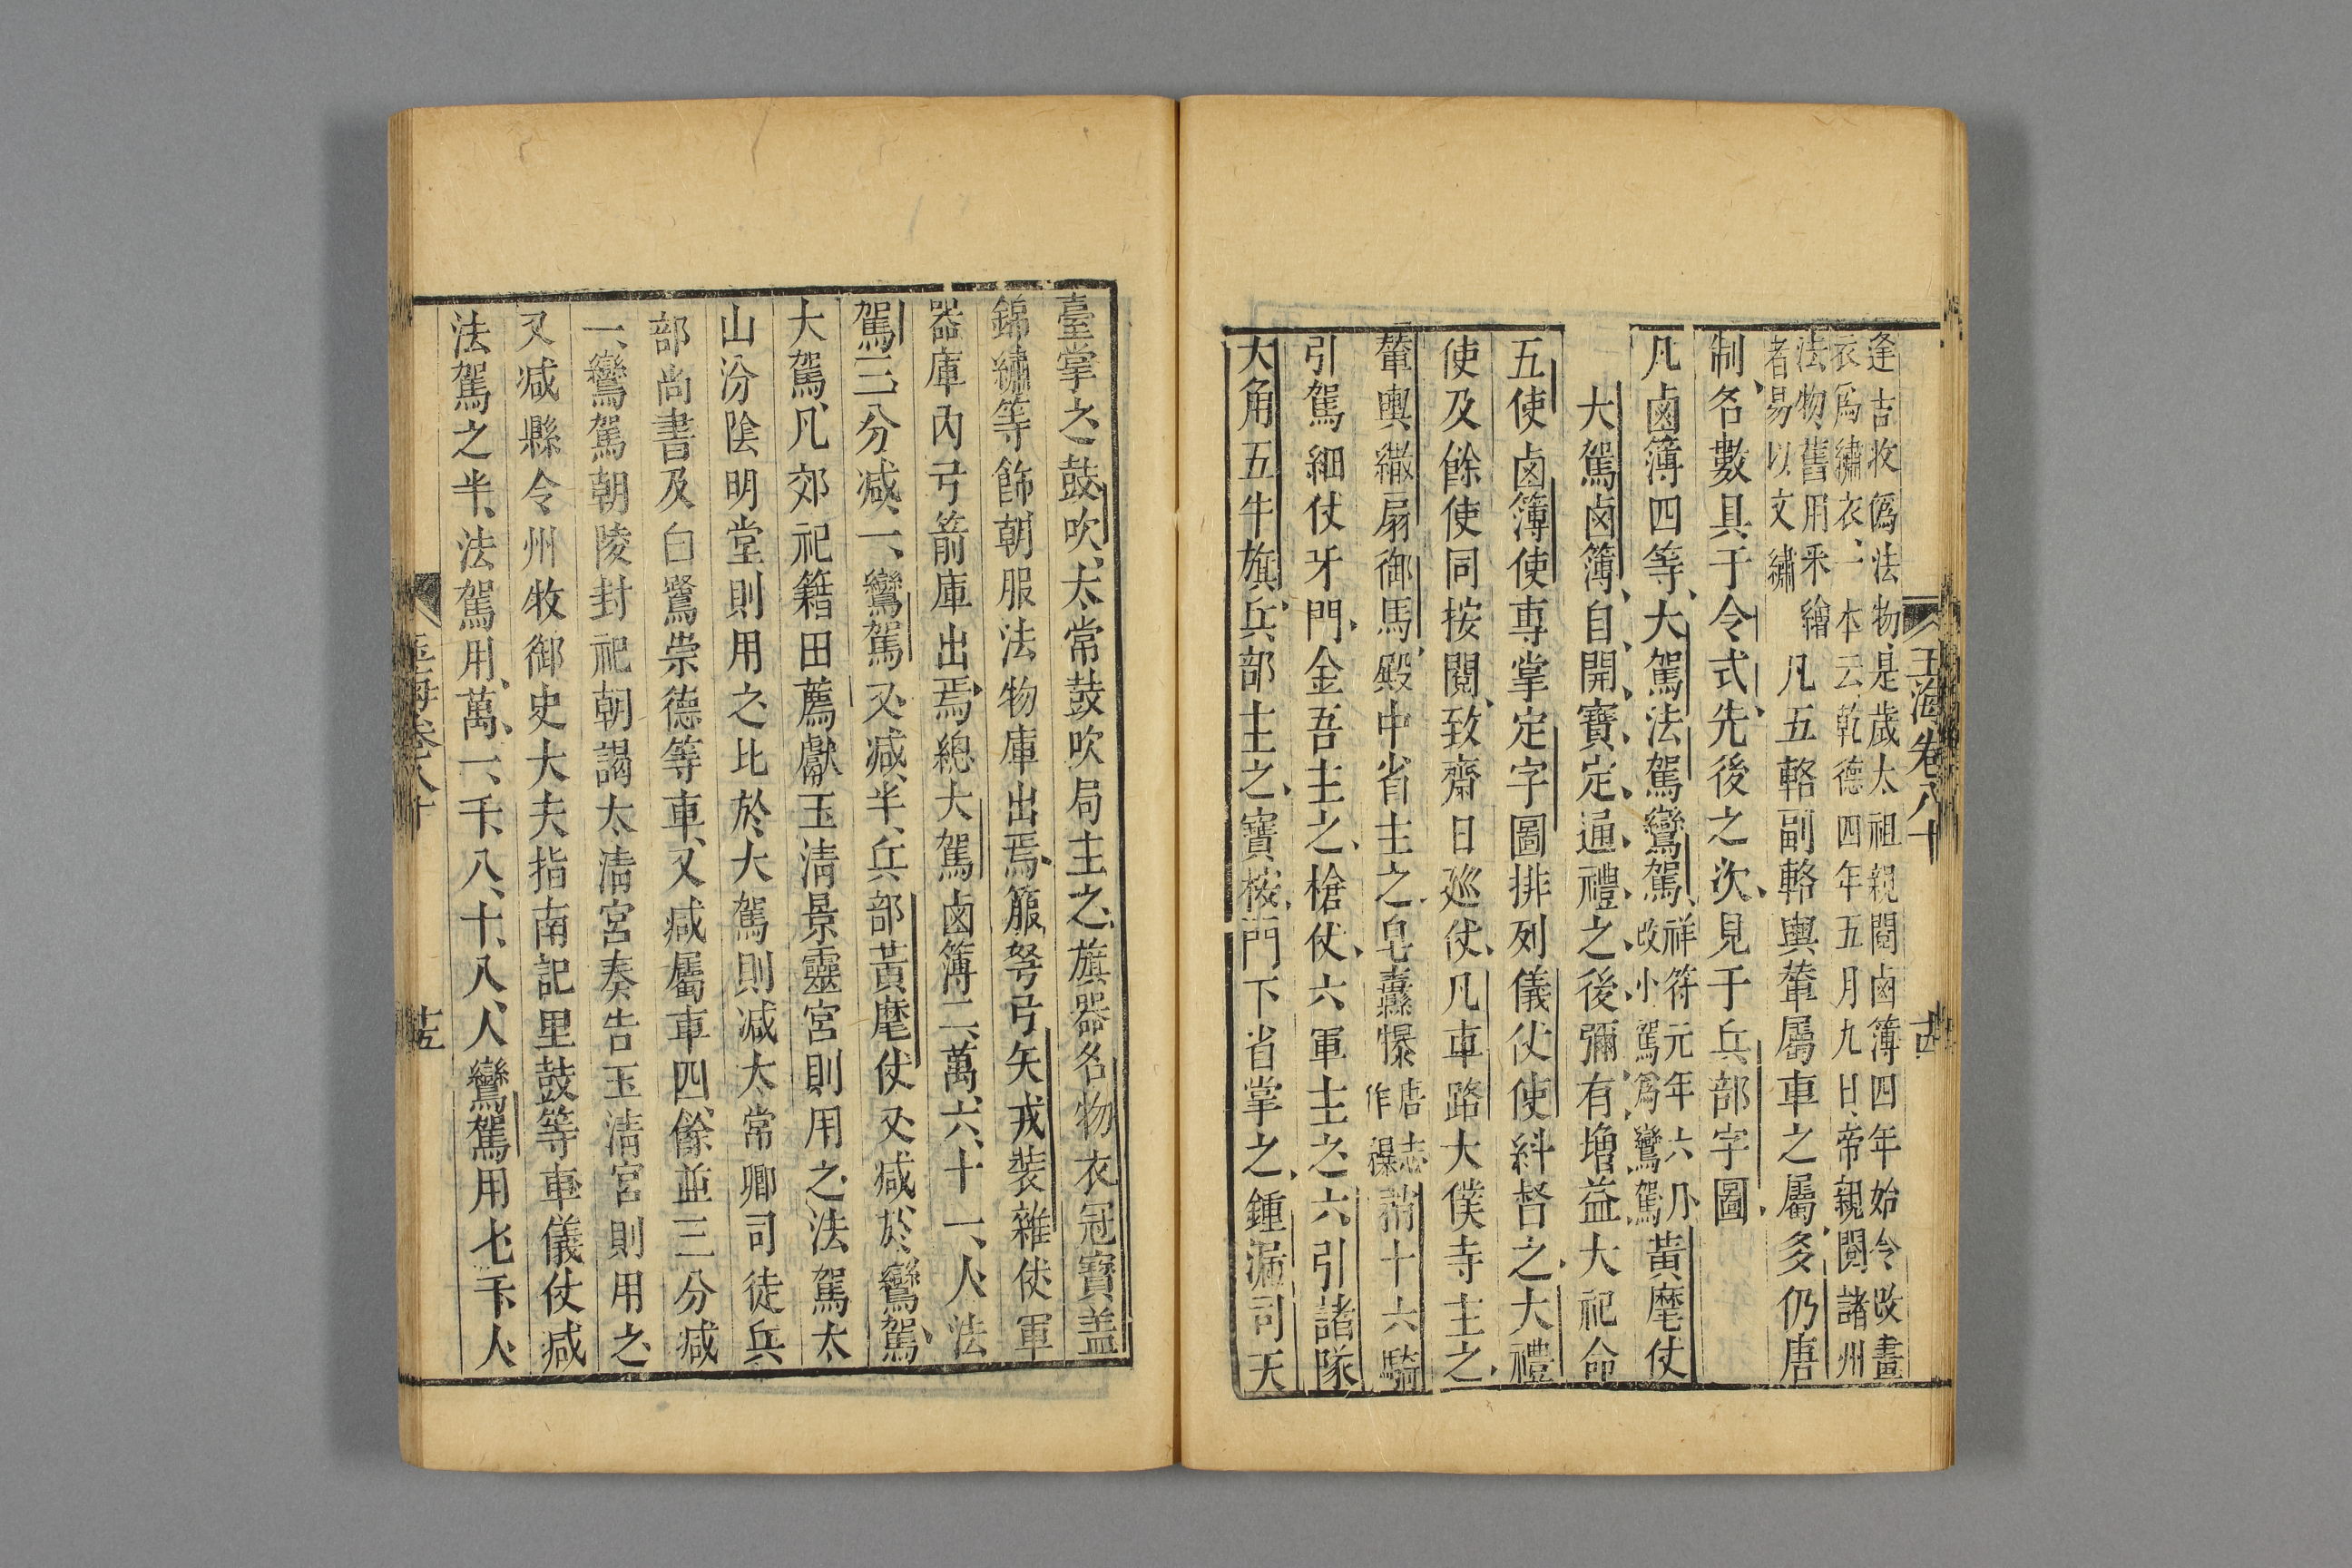 玉海卷八十
逢吉收僞法物是歲太祖親閱鹵簿四年始令改畫
衣爲繡衣一本云乾德四年五月九日帝親閱諸州
法物舊用采繪
者易以文繡
凡五輅副輅輿輦屬車之屬多仍唐
制名數具于令式先後之次見于兵部字圖
凡鹵簿四等大駕法駕鸞駕祥符元年六月
改小駕爲鸞駕
黃麾仗
大駕鹵簿自開寶定通禮之後彌有增益大祀命
五使鹵簿使專掌定字圖排列儀仗使糾督之大禮
使及餘使同按閱致齋日廵仗凡車路大僕寺主之
輦輿繖扇御馬殿中省主之皂纛𢅏唐志
作㡡
矟十六騎
引駕細仗牙門金吾主之槍仗六軍主之六引諸隊
大角五牛旗兵部主之寶桉門下省掌之鍾漏司天
臺掌之鼓吹太常鼓吹局主之旗器名物衣冠寶盖
錦繡等飾朝服法物庫出焉箙弩弓矢戎裝雜仗軍
器庫內弓箭庫出焉總大駕鹵簿二萬六十一人法
駕三分减一鸞駕又减半兵部黃麾仗又减於鸞駕
大駕凡郊祀籍田薦獻玉淸景靈宮則用之法駕太
山汾陰明堂則用之比於大駕則减太常卿司徒兵
部尚書及白鷺崇德等車又减屬車四餘並三分减
一鸞駕朝陵封祀朝謁太淸宮奏告玉淸宮則用之
又减縣令州牧御史大夫指南記里鼓等車儀仗减
法駕之半法駕用萬一千八十八人鸞駕用七千人
玉海卷八十
十五